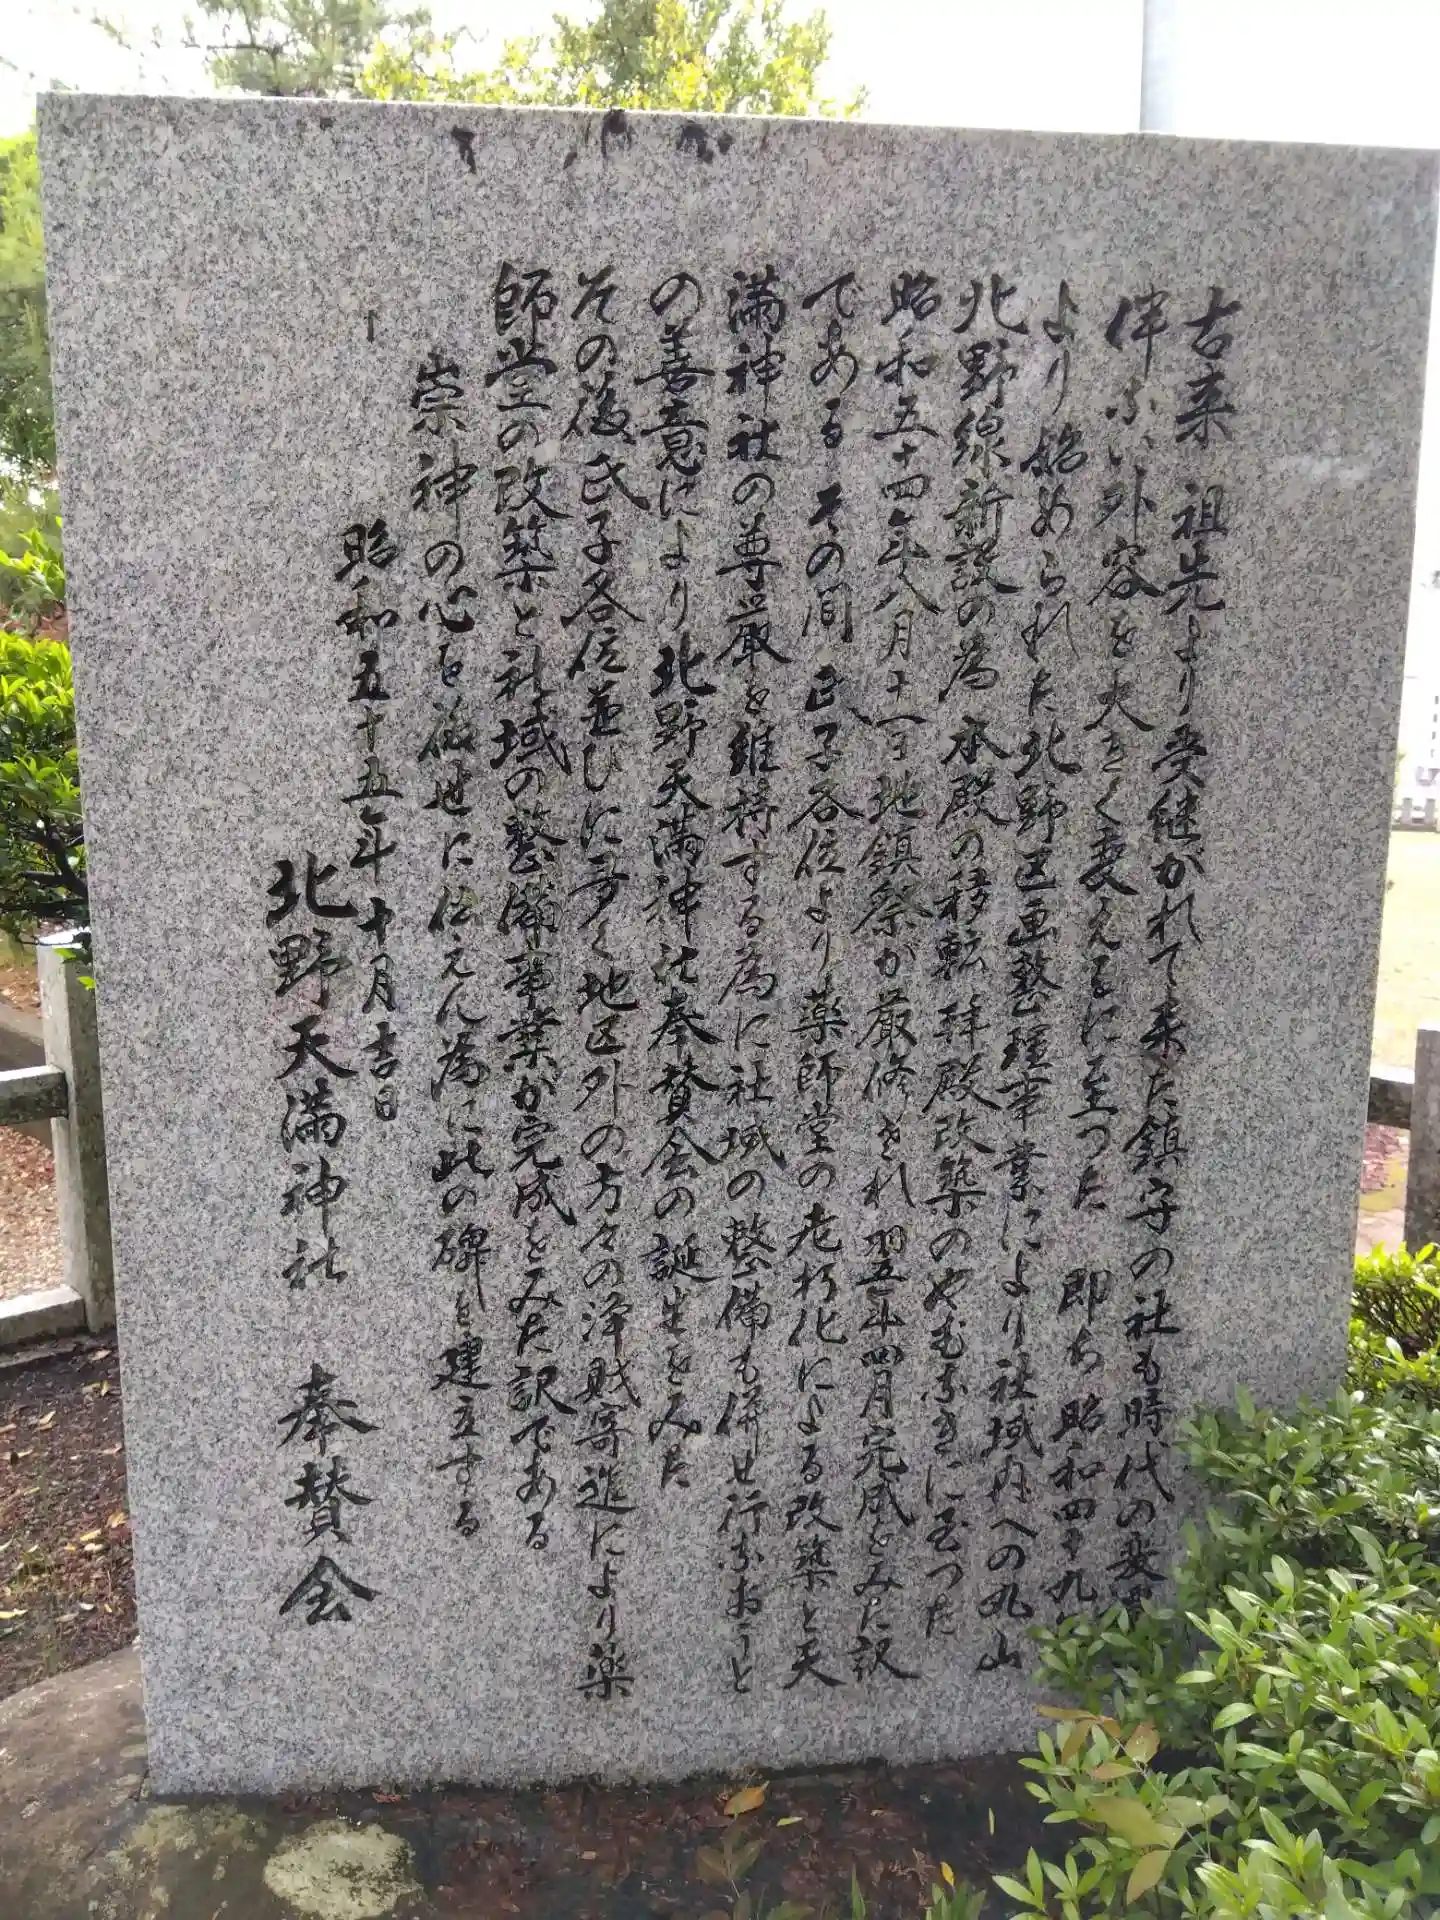 古来 祖先より受継がれて来た鎮守の社も時代の変
伴ない外容を大きく変えるに至った 即ち昭和四十九
より始められた北野区画整理事業により社域内への丸山
北野線新設の為 本殿の移転 拝殿改築のやむなきに至った
昭和五十四年八月十一日地鎮祭が厳修され 翌五年四月完成をみた訳
である その間 氏子各位より薬師堂の老朽化による改築と天
満神社の尊厳を維持する為に社域の整備も併せ行なおうと
の善意により 北野天満神社奉賛会の誕生をみた
その後 氏子各位並びに 地区外の方々の浄財寄進により薬
師堂の改築と社域の整備事業が完成をみた訳である
崇神の心を後世に伝えん為に此の碑を建立する
昭和五十五年十月吉日
北野天満神社 奉賛会